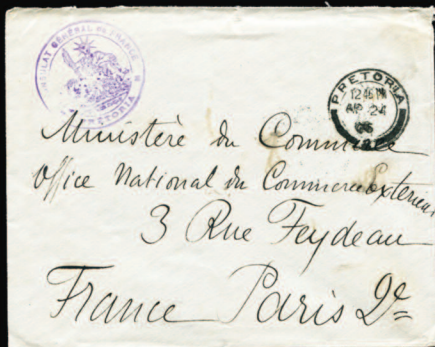 CONSULAT GÉNÉRAL DE FRANCE
PRETORIA
PRETORIA
AP 24
Ministère du Commerce
Office National du Commerce Exterieur
3 Rue Feydeau
France Paris 2e